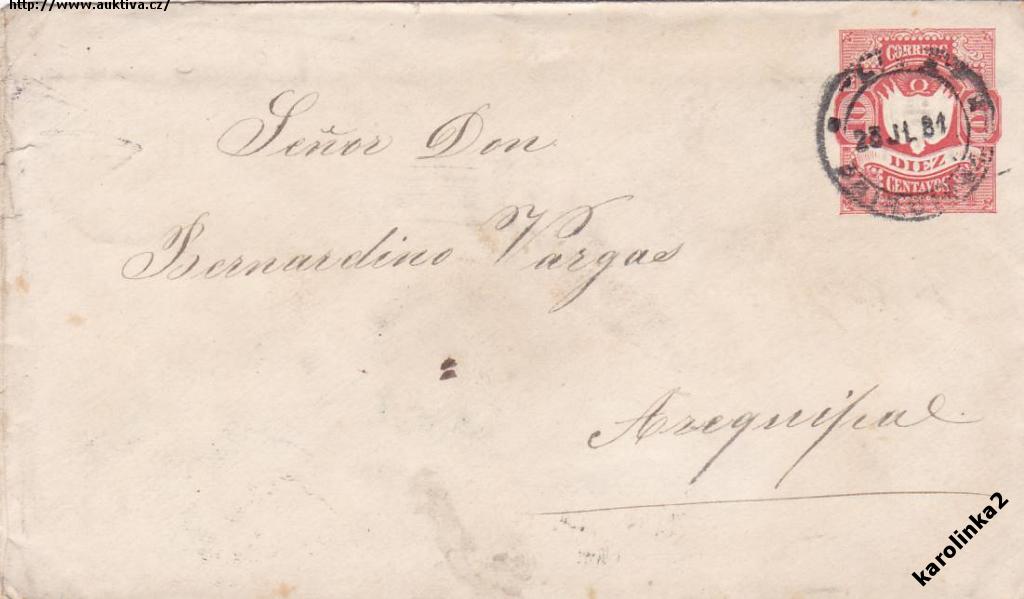 http://www.auktiva.cz/
CORREOS
10
23 JL 81
DIEZ
CENTAVOS
Señor Don
Bernardino Vargas
Arequipa
karolinka2